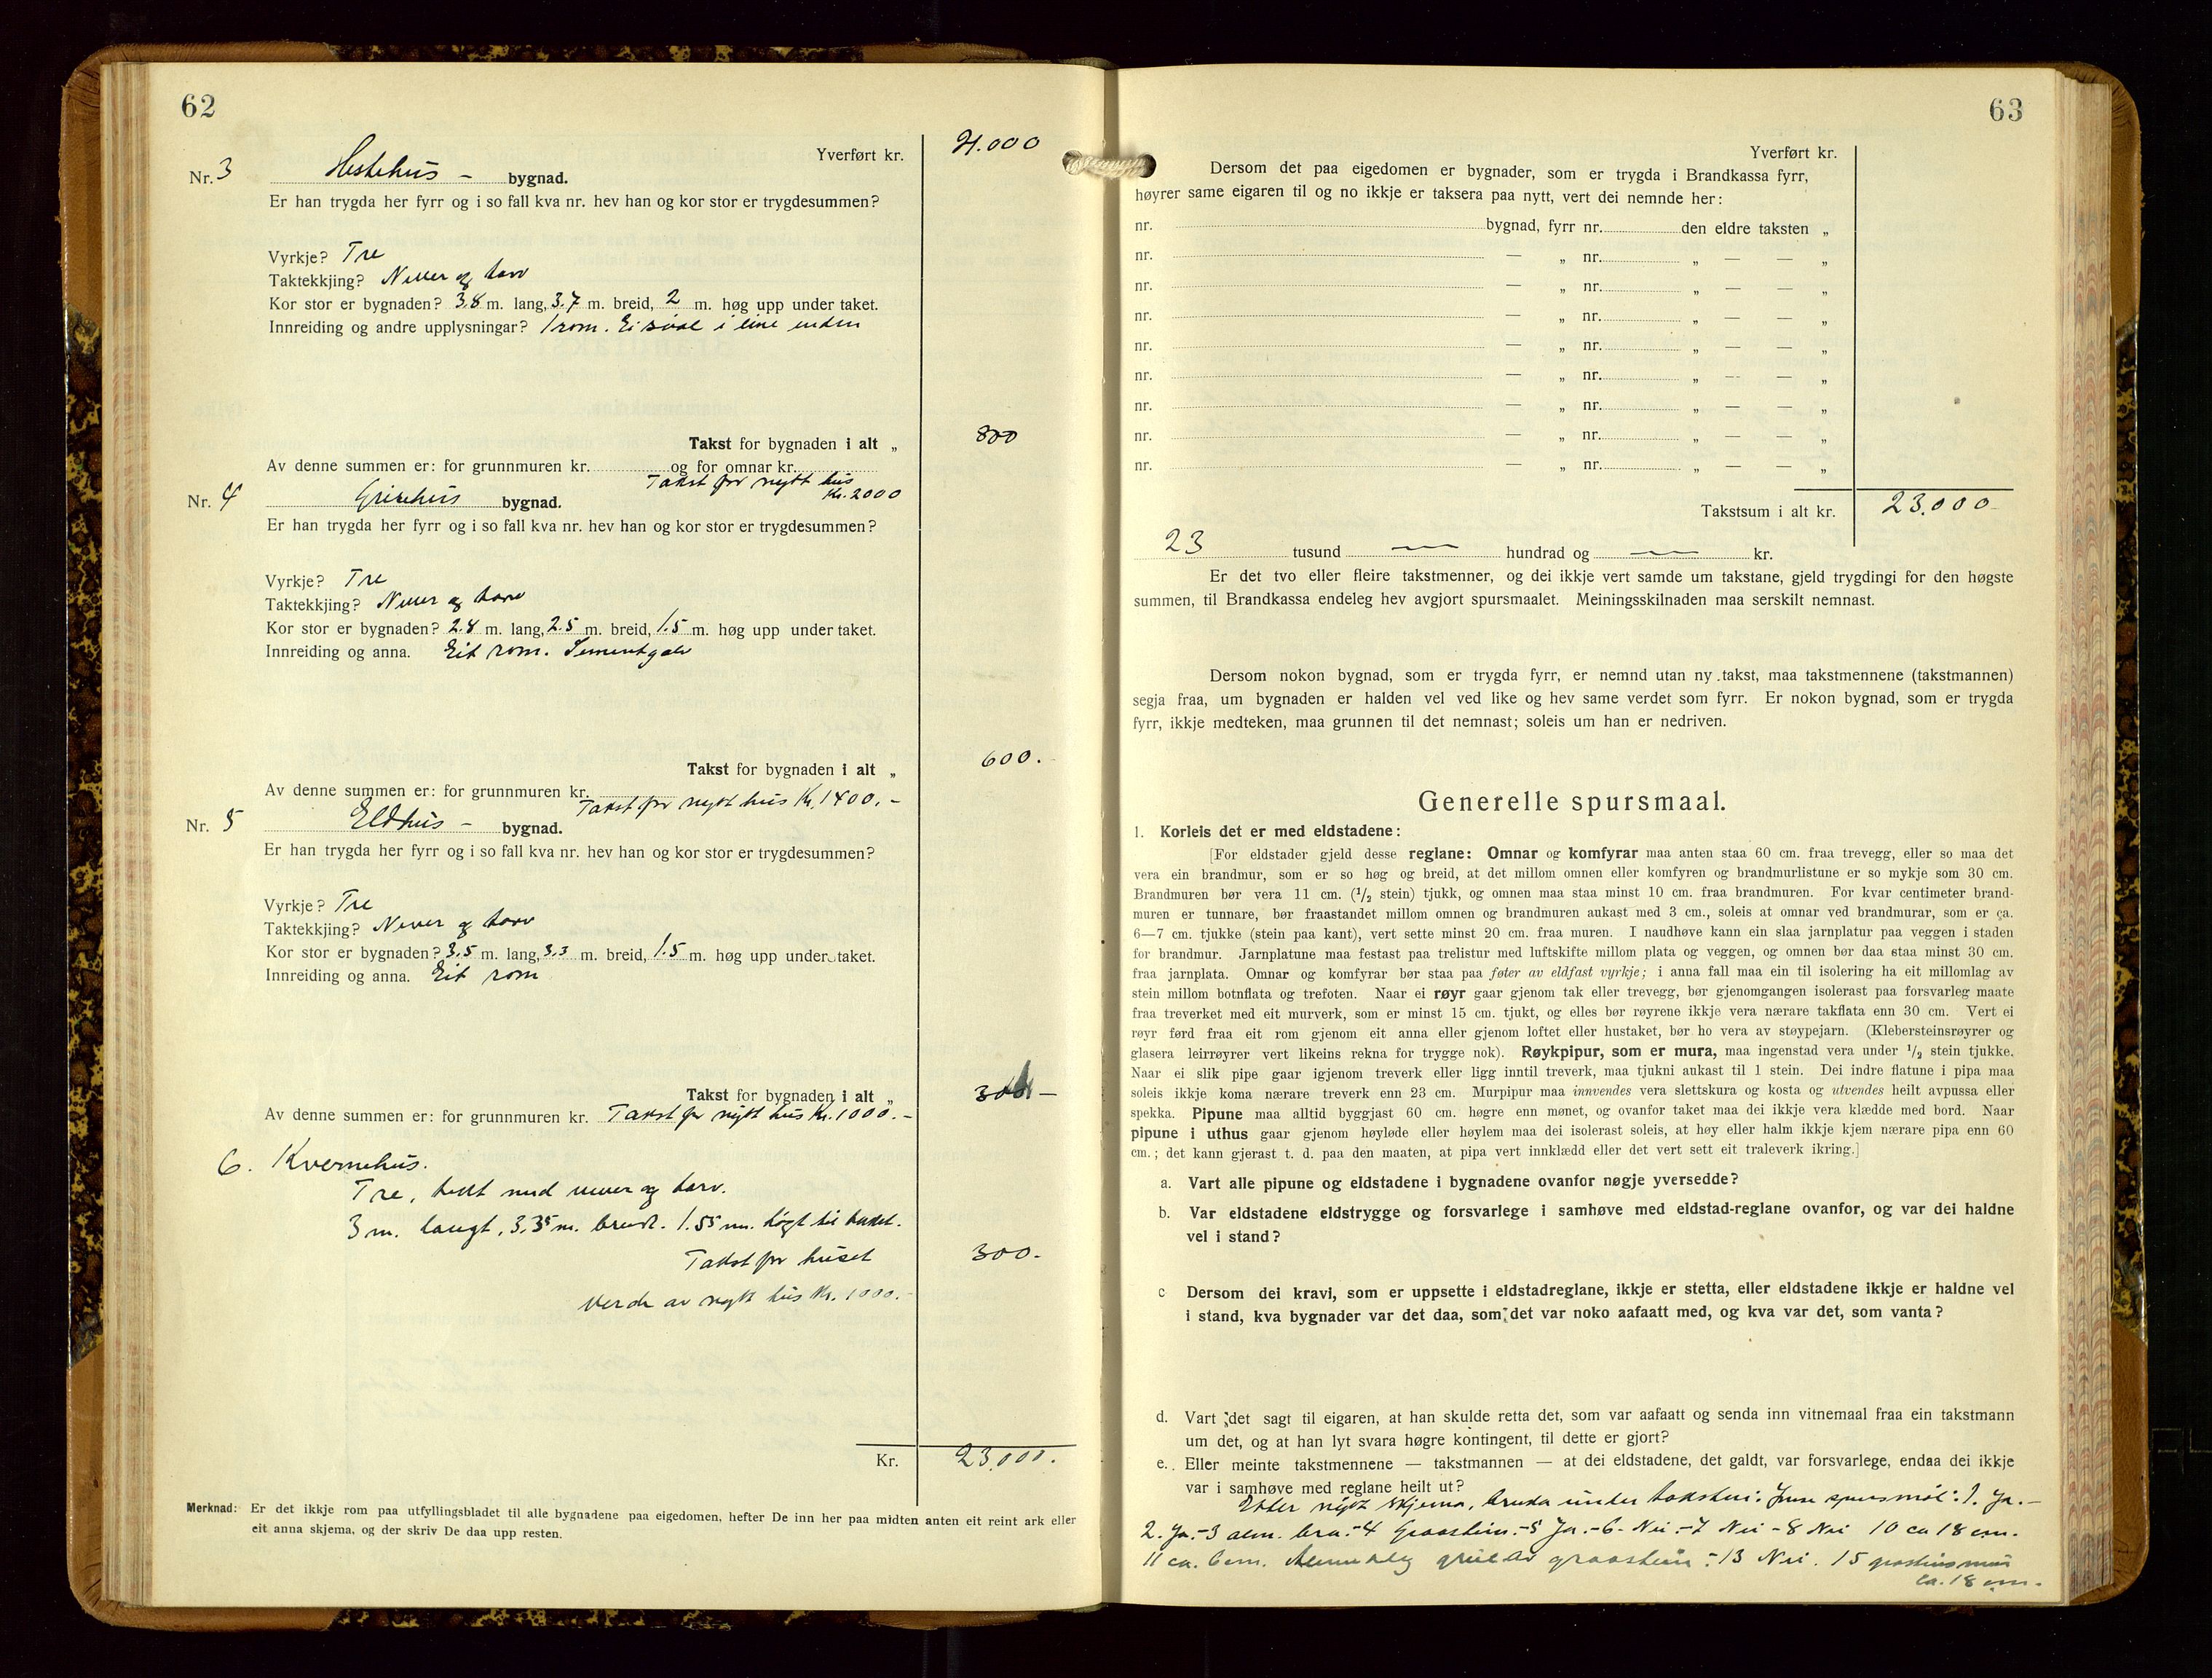 62
Yverført kr. 21.000
Nr. 3 Hestehus – bygnad.
Er han trygda her fyrr og i so fall kva nr. hev han og kor stor er trygdesummen?
Vyrkje? Tre
Taktekkjing? Never og torv
Kor stor er bygnaden? 3.8 m. lang, 3.7 m. breid, 2 m. høg upp under taket.
Innreiding og andre upplysningar? 1 rom. Ei sval i eine enden
Takst for bygnaden i alt „ 800
Av denne summen er: for grunnmuren kr. og for omnar kr.
Takst for nytt hus
Kr. 2000
Nr. 4 Grisehus bygnad.
Er han trygda her fyrr og i so fall kva nr. hev han og kor stor er trygdesummen?
Vyrkje? Tre
Taktekkjing? Never og torv
Kor stor er bygnaden? 2.8 m. lang, 2.5 m. breid, 1.5 m. høg upp under taket.
Innreiding og anna. Eit rom. Sementgolv
Takst for bygnaden i alt „ 600.
Av denne summen er: for grunnmuren kr.
Takst for nytt hus Kr. 1400.-
Nr. 5 Eldhus – bygnad.
Er han trygda her fyrr og i so fall kva nr. hev han og kor stor er trygdesummen?
Vyrkje? Tre
Taktekkjing? Never og torv
Kor stor er bygnaden? 3.5 m. lang, 3.3 m. breid, 1.5 m. høg upp under taket.
Innreiding og anna. Eit rom
Takst for bygnaden i alt „ 300 –
Av denne summen er: for grunnmuren kr. Takst for nytt hus Kr. 1000.-
6. Kvernehus.
Tre, tekt med never og torv.
3 m. langt, 3.35 m. breidt. 1.55 m. høgt til taket.
Takst for huset 300.-
Verde av nytt hus Kr. 1000.-
Kr. 23.000.
Merknad: Er det ikkje rom paa utfyllingsbladet til alle bygnadene paa eigedomen, hefter De inn her paa midten anten eit reint ark eller
eit anna skjema, og der skriv De daa upp resten.
63
Yverført kr.
Dersom det paa eigedomen er bygnader, som er trygda i Brandkassa fyrr,
høyrer same eigaren til og no ikkje er taksera paa nytt, vert dei nemnde her:
nr. bygnad, fyrr nr. den eldre taksten „
nr. — „ nr. „ — — „
nr. — „ nr. „ — — „
nr. — „ nr. „ — — „
nr. — „ nr. „ — — „
nr. — „ nr. „ — — „
nr. — „ nr. „ — — „
nr. — „ nr. „ — — „
nr. — „ nr. „ — — „
Takstsum i alt kr. 23.000-
23 tusund — hundrad og — kr.
Er det tvo eller fleire takstmenner, og dei ikkje vert samde um takstane, gjeld trygdingi for den høgste
summen, til Brandkassa endeleg hev avgjort spursmaalet. Meiningsskilnaden maa serskilt nemnast.
Dersom nokon bygnad, som er trygda fyrr, er nemnd utan ny takst, maa takstmennene (takstmannen)
segja fraa, um bygnaden er halden vel ved like og hev same verdet som fyrr. Er nokon bygnad, som er trygda
fyrr, ikkje medteken, maa grunnen til det nemnast; soleis um han er nedriven.
Generelle spursmaal.
1. Korleis det er med eldstadene:
[For eldstader gjeld desse reglane: Omnar og komfyrar maa anten staa 60 cm. fraa trevegg, eller so maa det
vera ein brandmur, som er so høg og breid, at det millom omnen eller komfyren og brandmurlistune er so mykje som 30 cm.
Brandmuren bør vera 11 cm. (1/2 stein) tjukk, og omnen maa staa minst 10 cm. fraa brandmuren. For kvar centimeter brand-
muren er tunnare, bør fraastandet millom omnen og brandmuren aukast med 3 cm., soleis at omnar ved brandmurar, som er ca.
6—7 cm. tjukke (stein paa kant), vert sette minst 20 cm. fraa muren. I naudhøve kann ein slaa jarnplatur paa veggen i staden
for brandmur. Jarnplatune maa festast paa trelistur med luftskifte millom plata og veggen, og omnen bør daa staa minst 30 cm.
fraa jarnplata. Omnar og komfyrar bør staa paa føter av eldfast vyrkje; i anna fall maa ein til isolering ha eit millomlag av
stein millom botnflata og trefoten. Naar ei røyr gaar gjenom tak eller trevegg, bør gjenomgangen isolerast paa forsvarleg maate
fraa treverket med eit murverk, som er minst 15 cm. tjukt, og elles bør røyrene ikkje vera nærare takflata enn 30 cm. Vert ei
røyr førd fraa eit rom gjenom eit anna eller gjenom loftet eller hustaket, bør ho vera av støypejarn. (Klebersteinsrøyrer og
glasera leirrøyrer vert likeins rekna for trygge nok). Røykpipur, som er mura, maa ingenstad vera under 1/2 stein tjukke.
Naar ei slik pipe gaar igjenom treverk eller ligg inntil treverk, maa tjukni aukast til 1 stein. Dei indre flatune i pipa maa
soleis ikkje koma nærare treverk enn 23 cm. Murpipur maa innvendes vera slettskura og kosta og utvendes heilt avpussa eller
spekka. Pipune maa alltid byggjast 60 cm. høgre enn mønet, og ovanfor taket maa dei ikkje vera klædde med bord. Naar
pipune i uthus gaar gjenom høyløde eller høylem maa dei isolerast soleis, at høy eller halm ikkje kjem nærare pipa enn 60
cm.; det kann gjerast t. d. paa den maaten, at pipa vert innklædd eller det vert sett eit traleverk ikring.]
a. Vart alle pipune og eldstadene i bygnadene ovanfor nøgje yversedde?
b. Var eldstadene eldstrygge og forsvarlege i samhøve med eldstad-reglane ovanfor, og var dei haldne
vel i stand?
c Dersom dei kravi, som er uppsette i eldstadreglane, ikkje er stetta, eller eldstadene ikkje er haldne vel
i stand, kva bygnader var det daa, som det var noko aafaatt med, og kva var det, som vanta?
d. Vart det sagt til eigaren, at han skulde retta det, som var aafaatt og senda inn vitnemaal fraa ein takstmann
um det, og at han lyt svara høgre kontingent, til dette er gjort?
e. Eller meinte takstmennene — takstmannen — at dei eldstadene, det galdt, var forsvarlege, endaa dei ikkje
var i samhøve med reglane heilt ut?
Etter nytt skjema, bruka under taksten: spursmål: 1. Ja.-
2. Ja.-3 alm. bra.-4 Graastein.-5 Ja.-6- Nei.-7 Nei -8 Nei 10 ca 18 cm.
11 ca. 6 cm. av graastein.-13 Nei. 15
ca. 18 cm.